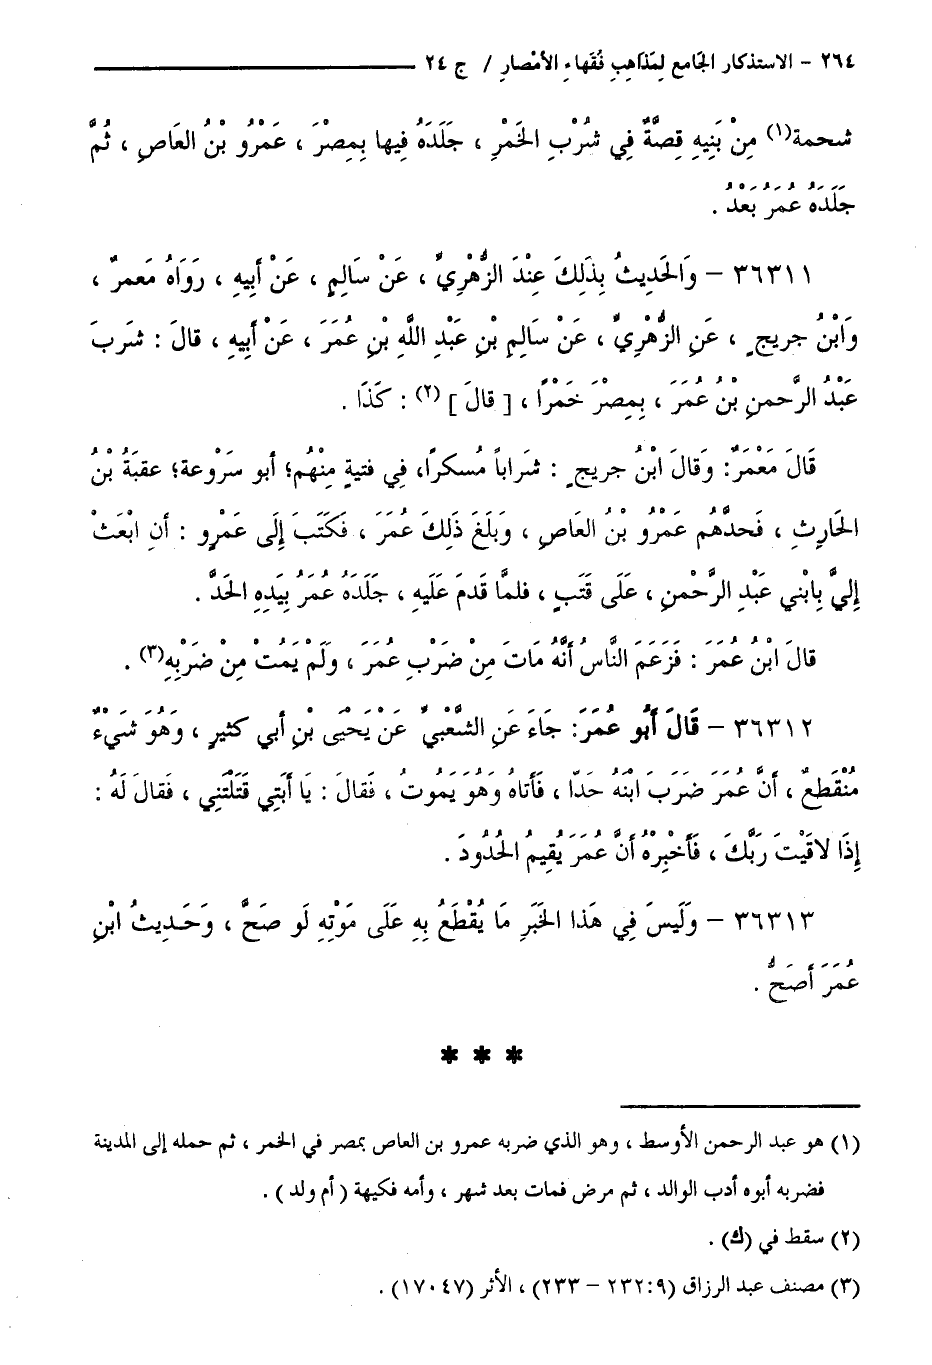 ٢٦٤ - الاستذكار الجَامع لِمَذاهِبِ فُقَهاءِ الأمْصارِ / ج ٢٤
شحمة(١) مِنْ بَنِيهِ قِصَّةٌ فِي شُرْبِ الخَمْرِ ، جَلَدَهُ فِيها بِمِصْرَ ، عَمْرُو بْنُ العَاصِ ، ثُمَّ
جَلَدَهُ عُمَرُ بَعْدُ .
٣٦٣١١ – وَالحَدِيثُ بِذَلِكَ عِنْدَ الزُّهْرِيِّ ، عَنْ سَالِمٍ ، عَنْ أَبِيهِ ، رَوَاهُ مَعمرٌ ،
وَابْنُ جريجٍ ، عَنِ الزُّهْرِيِّ ، عَنْ سَالِمِ بْنِ عَبْدِ اللَّهِ بْنِ عُمَرَ ، عَنْ أَبِيهِ ، قالَ : شَربَ
عَبْدُ الرَّحمنِ بْنُ عُمَرَ ، بِمِصْرَ خَمْرًا ، [ قالَ ] (٢) : كَذَا .
قَالَ مَعْمَرٌ: وَقالَ ابْنُ جريجٍ : شَراباً مُسكرًا، فِي فتيةٍ مِنْهُم؛ أبو سَرْوعة؛ عقبَةُ بْنُ
الحَارِثِ ، فَحدَّهُم عَمْرُو بْنُ العَاصِ ، وَبَلَغَ ذَلِكَ عُمَرَ ، فَكَتَبَ إِلَى عَمْرٍو : أنِ ابْعَثْ
إِليَّ بِابْنِي عَبْدِ الرَّحْمنِ ، عَلَى قَتَبٍ ، فلمَّا قَدمَ عَلَيهِ ، جَلَدَهُ عُمَرُ بِيَدِهِ الحَدَّ .
قالَ ابْنُ عُمَرَ : فَزَعَمَ النَّاسُ أنَّهُ مَاتَ مِنْ ضَرْبِ عُمَرَ ، وَلَمْ يَمُتْ مِنْ ضَرْبِهِ(٣) .
٣٦٣١٢ – قَالَ أَبُو عُمَرَ: جَاءَ عَنِ الشَّعْبِيِّ عَنْ يَحْيَى بْنِ أبي كثيرٍ ، وَهُوَ شَيْءٌ
مُنْقَطعٌ ، أنَّ عُمَرَ ضَرَبَ ابنَهُ حَدّا ، فَأتاهُ وَهُوَ يَموتُ ، فَقالَ : يَا أَبَتِي قَتَلْتَنِي ، فَقالَ لَهُ :
إِذَا لاقَيْتَ رَبَّكَ ، فَأخْبِرْهُ أنَّ عُمَرَ يُقِيمُ الحُدُودَ .
٣٦٣١٣ – وَلَيسَ فِي هَذَا الخَبَرِ مَا يُقْطَعُ بِهِ عَلَى مَوْتِهِ لَو صَحَّ ، وَحَدِيثُ ابْنِ
عُمَرَ أَصَحُّ .
* * *
(١) هو عبد الرحمن الأوسط ، وهو الذي ضربه عمرو بن العاص بمصر في الخمر ، ثم حمله إلى المدينة
فضربه أبوه أدب الوالد ، ثم مرض فمات بعد شهر ، وأمه فكيهة ( أم ولد ) .
(٢) سقط في (ك) .
(٣) مصنف عبد الرزاق (٩:٢٣٢ – ٢٣٣) ، الأثر (١٧٠٤٧) .